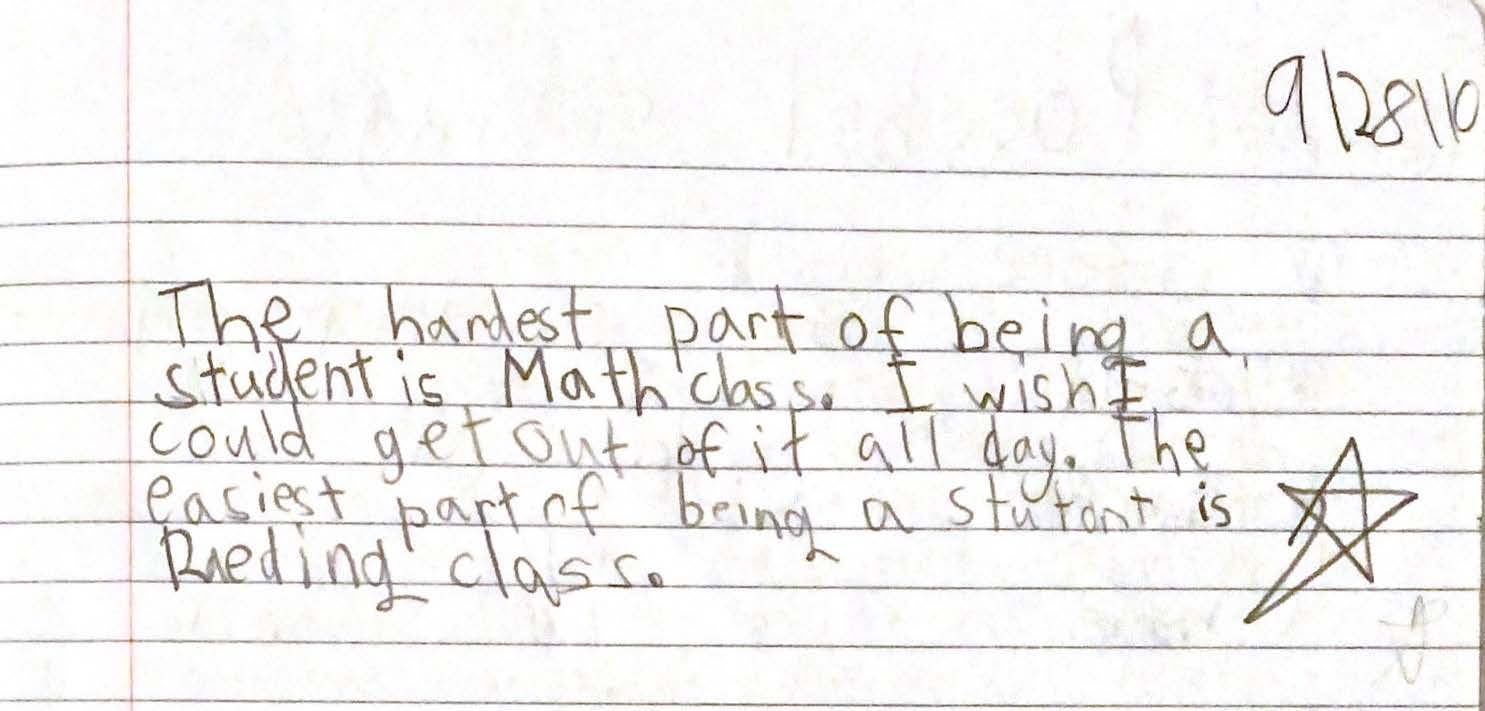 9/28/10
The hardest part of being a
student is Math class. I wish I
could get out of it all day. The
easiest part of being a stutont is
Reeding class.